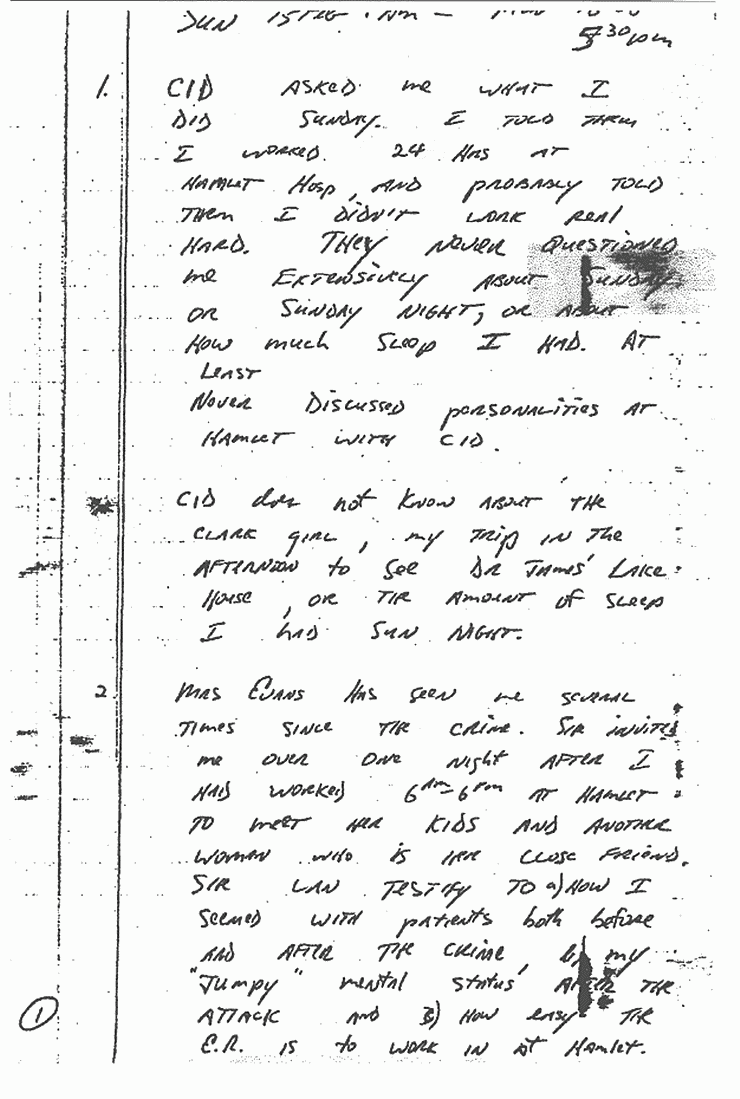 SUN 15 FEB AM -
5:30pm
1. CID ASKED me WHAT I
DID SUNDAY. I TOLD THEM
I WORKED 24 HRS AT
HAMLET HOSP, AND PROBABLY TOLD
THEM I DIDN'T WORK REAL
HARD. THEY NEVER QUESTIONED
me EXTENSIVELY ABOUT SUNDAY
OR SUNDAY NIGHT, OR ABOUT
HOW much SLEEP I HAD. AT
LEAST
NEVER DISCUSSED personALITIES AT
HAMLET WITH CID.
CID does not KNOW ABOUT THE
CLARK girl, my TRIP IN THE
AFTERNOON to SEE DR JAMES' LAKE
HOUSE, OR THE AMOUNT of SLEEP
I HAD SUN NIGHT.
2. MRS EVANS HAS SEEN me SEVERAL
TIMES SINCE THE CRIME. SHE INVITED
me OVER ONE NIGHT AFTER I
HAD WORKED 6AM-6PM AT HAMLET
TO meet HER KIDS AND ANOTHER
WOMAN WHO IS HER CLOSE FRIEND.
SHE CAN TESTIFY TO a) HOW I
SEEMED WITH patients both before
AND AFTER THE CRIME, b) my
"Jumpy" mental status AFTER THE
ATTACK AND c) HOW easy THE
E.R. is to WORK IN AT Hamlet.
1